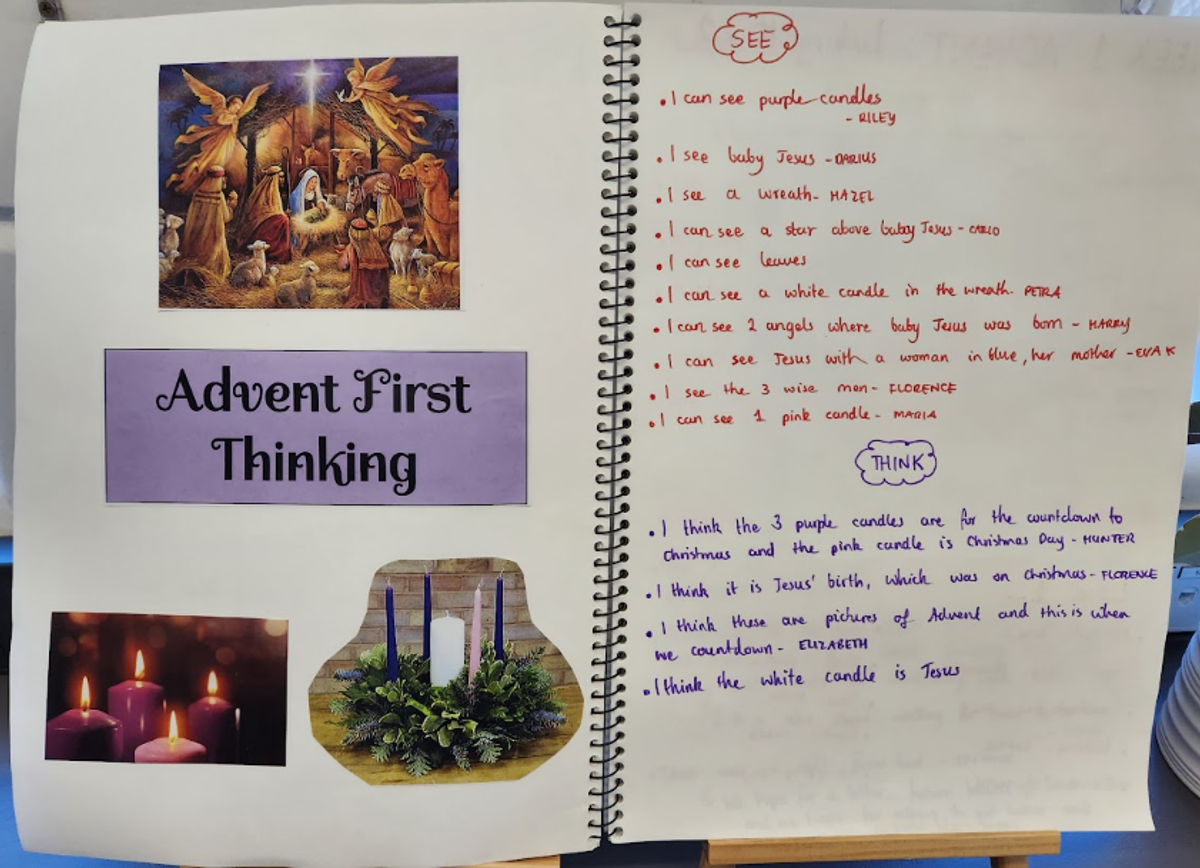 Advent First
Thinking
SEE
• I can see purple candles
- RILEY
• I see baby Jesus - DARIUS
• I see a wreath - HAZEL
• I can see a star above baby Jesus - CARLO
• I can see leaves
• I can see a white candle in the wreath. PETRA
• I can see 2 angels where baby Jesus was born - HARRY
• I can see Jesus with a woman in blue, her mother - EVA K
• I see the 3 wise men - FLORENCE
• I can see 1 pink candle - MARIA
THINK
• I think the 3 purple candles are for the countdown to
Christmas and the pink candle is Christmas Day - HUNTER
• I think it is Jesus' birth, which was on Christmas - FLORENCE
• I think these are pictures of Advent and this is when
we countdown - ELIZABETH
• I think the white candle is Jesus